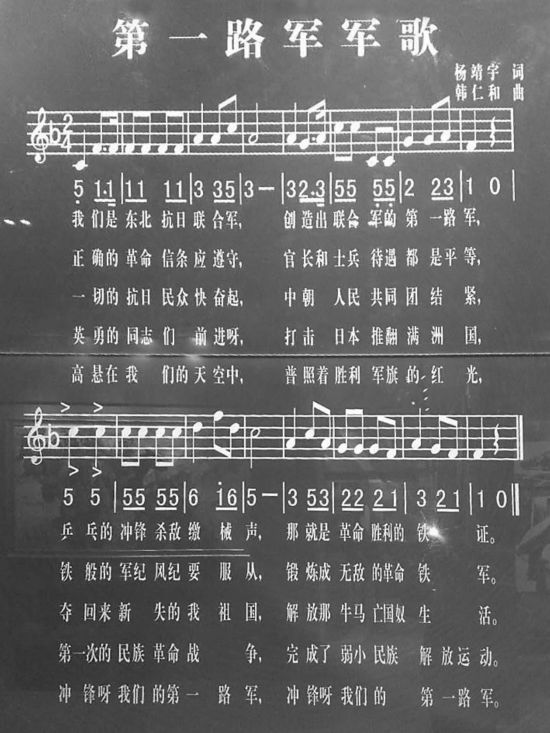 第一路军军歌
杨靖宇 词
韩仁和 曲
2/4
5 1·1 | 11 11 | 3 35 | 3 — | 32·3 | 55 55 | 2 23 | 1 0 |
我们是 东北 抗日 联合军, 创造出 联合 军的 第一路 军,
正确的 革命 信条 应 遵守, 官长和 士兵 待遇 都是平 等,
一切的 抗日 民众 快 奋起, 中朝 人民 共同 团结 紧,
英勇的 同志们 前进呀, 打击 日本 推翻 满洲 国,
高悬在 我们的 天空中, 普照着 胜利 军旗的 红光,
5 5 | 55 55 | 6 16 | 5 — | 3 53 | 22 21 | 3 21 | 1 0 ||
乒乓的 冲锋 杀敌 缴械声, 那就是 革命 胜利的 铁证。
铁般的 军纪 风纪 要服从, 锻炼成 无敌 的革命 铁军。
夺回来 新失的 我祖国, 解放那 牛马 亡国奴 生活。
第一次的 民族 革命 战争, 完成了 弱小 民族 解放运动。
冲锋呀 我们的 第一路军, 冲锋呀 我们的 第一路军。